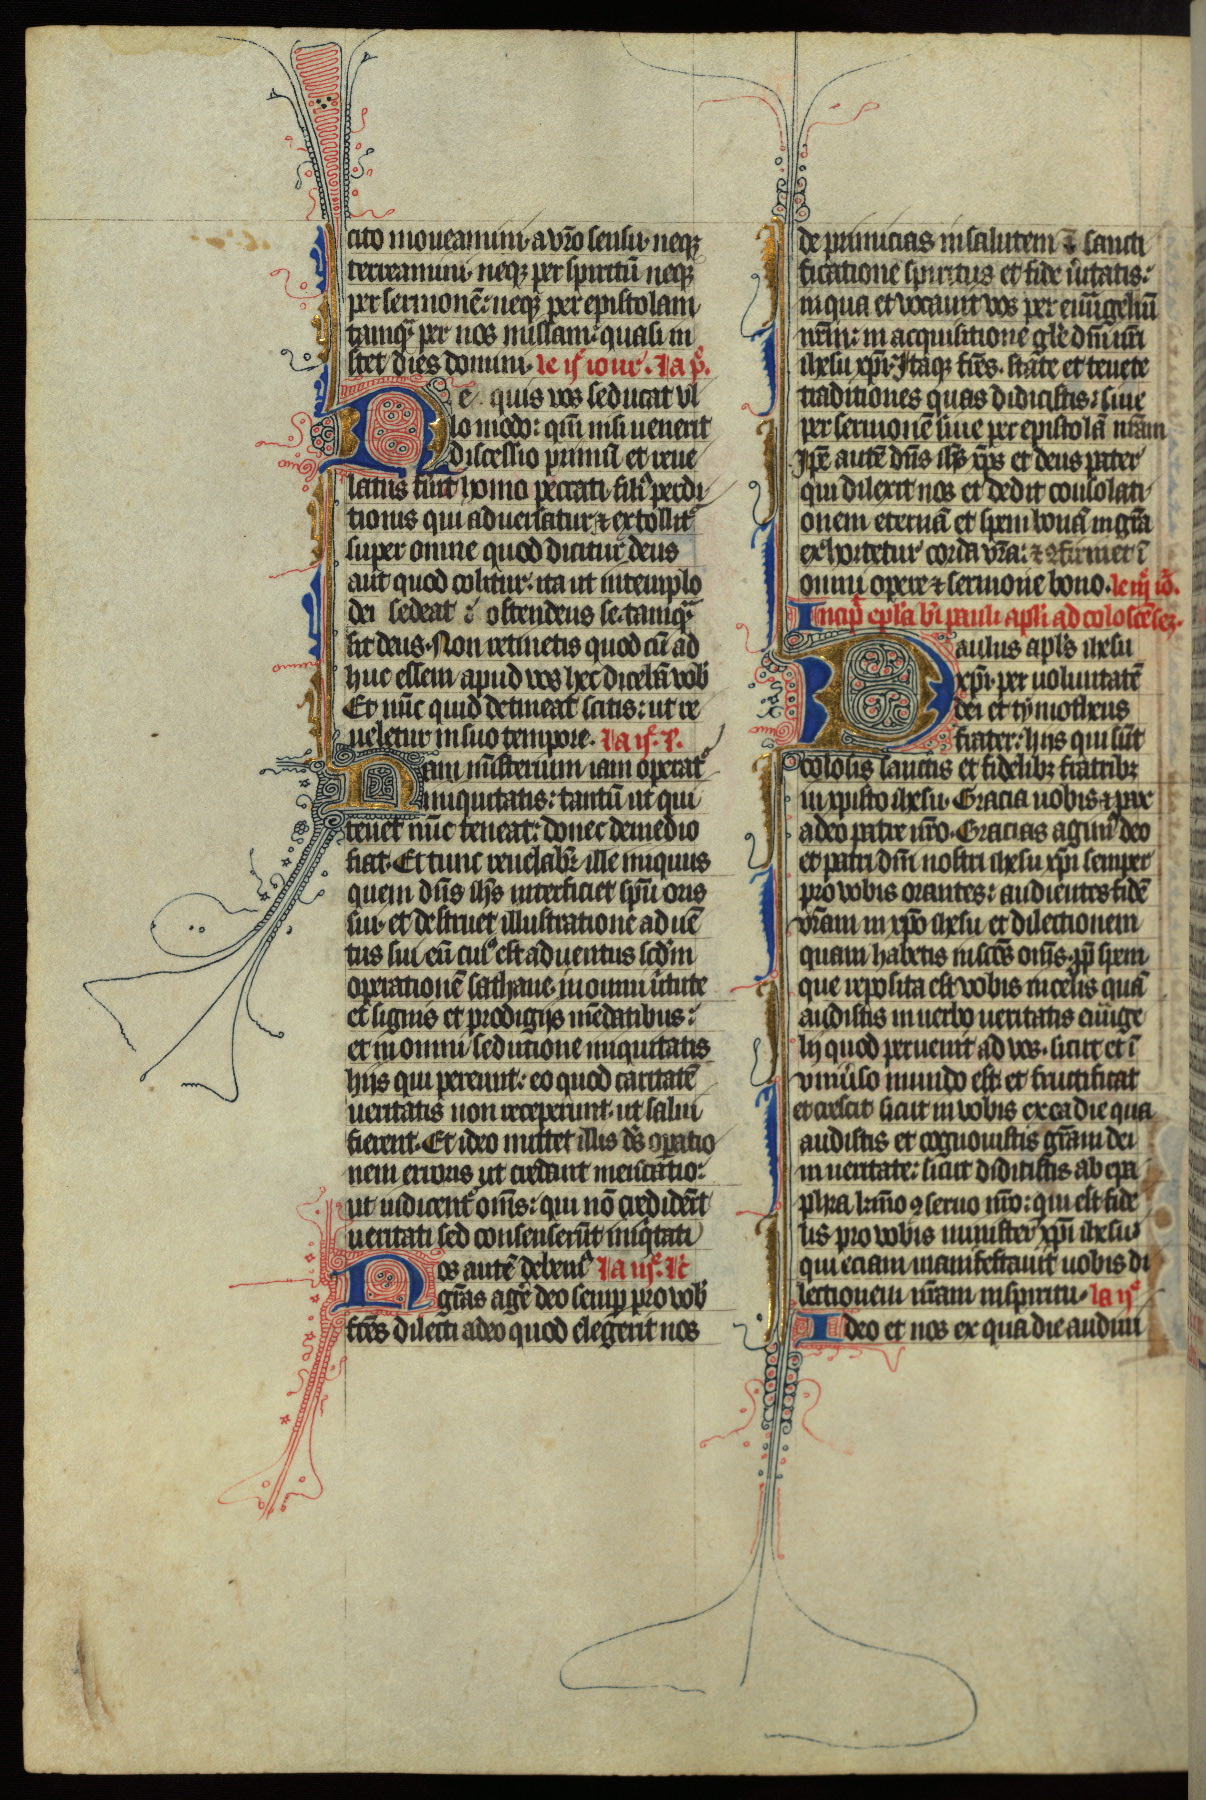 cito moueamini· a vr̄o sensu· neqꝫ
terreamini· neqꝫ per spiritū neqꝫ
per sermonē: neqꝫ per epistolam
tamq̄ per nos missam: quasi in
stet dies domini· le ijͤ iour· la pͤ.
Ne quis vos seducat vl
lo modo: qm̄ nisi uenerit
discessio primū et reue
latus fūit homo peccati fili⁹ perdi
tionis qui aduersatur ⁊ extollit᷑
super omne quod dicitur deus
aut quod colitur: ita ut in templo
dei sedeat ostendens se tamq̄
sit deus· Non retinetis quod cū ad
huc essem apud vos hec dicebā vob̄
Et nūc quid detineat scitis: ut re
ueletur in suo tempore· la ijͤ· l'.
Nam misterium iam operat᷑
iniquitatis: tantū ut qui
tenet nūc teneat: donec de medio
fiat· Et tunc reuelabit᷑ ille iniquus
quem dn̄s ih̄s interficiet spū oris
sui· et destruet illustratione aduē
tus sui eū cui⁹ est aduentus scd̄m
operationē sathane in omni ūtute
et signis et prodigijs mēdatibus:
et in omni seductione iniquitatis
hijs qui pereunt: eo quod caritatē
ueritatis non receperunt· ut salui
fierent· Et ideo mittet illis d̄s opatio
nem erroris ut credant mendatio:
ut iudicent᷑ om̄s: qui nō crediderūt
ueritati sed consenserūt iniq̄tati
Nos autē debem⁹ la iijͤ· lc̄
gr̄as agē deo semp pro vob̄
fr̄es dilecti a deo quod elegerit nos
de primicias in salutem in sancti
ficatione spiritus et fide ūitatis:
in qua et vocauit vos per euūgeliū
nr̄m: in acquisitione gl̄e dn̄i nr̄i
ihesu xp̄i· Itaqꝫ fr̄es· state et tenete
traditiones quas didicistis: siue
per sermonē siue per epistolā nr̄am
Ip̄e autē dn̄s ih̄s xp̄s et deus pater
qui dilexit nos et dedit consolati
onem eternā et spem bonā in gr̄a
exhortetur corda vr̄a: ⁊ ꝯfirmet ī
omni opere ⁊ sermone bono· le iijͤ iō.
Incip̄ epl̄a bi̅ pauli apl̄i ad colocēsez·
Paulus apl̄s ihesu
xp̄i· per uoluntatē
dei et tymotheus
frater: hijs qui sūt
colosis sanctis et fidelibꝫ fratribꝫ
in xpisto ihesu· Gracia uobis ⁊ pax
a deo patre nr̄o· Gracias agim⁹ deo
et patri dn̄i nostri ihesu xp̄i semper
pro vobis orantes: audientes fidē
vr̄am in xp̄o ihesu et dilectionem
quam habetis in scōs om̄s· pp̄ spem
que reposita est vobis in celis quā
audistis in uerbo ueritatis euūge
lij quod peruenit ad vos· sicut et ī
vniūso mundo est et fructificat
et crescit sicut in vobis ex ea die qua
audistis et cognouistis gr̄am dei
in ueritate: sicut didicistis ab epa
phra kr̄mo ꝯseruo nr̄o: qui est fide
lis pro vobis minister xp̄i ihesu·
qui eciam manifestauit uobis di
lectionem nr̄am in spiritu· la ijͤ
Ideo et nos ex qua die audiui